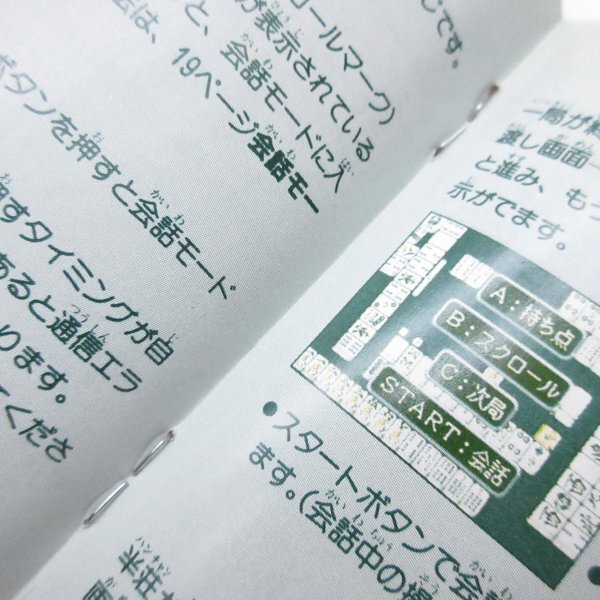 じです。
ロールマーク)
が表示されている
と、会話モードに入
法は、19ページ会話モー
ボタンを押すと会話モード
すタイミングが自
あると通信エラ
ります。
てくださ
一局が
渡し画面
と進み、もう
示がでます。
A:持ち点
B:スクロール
C:次局
START:会話
●スタートボタンで会話
ます。(会話中の操
半荘